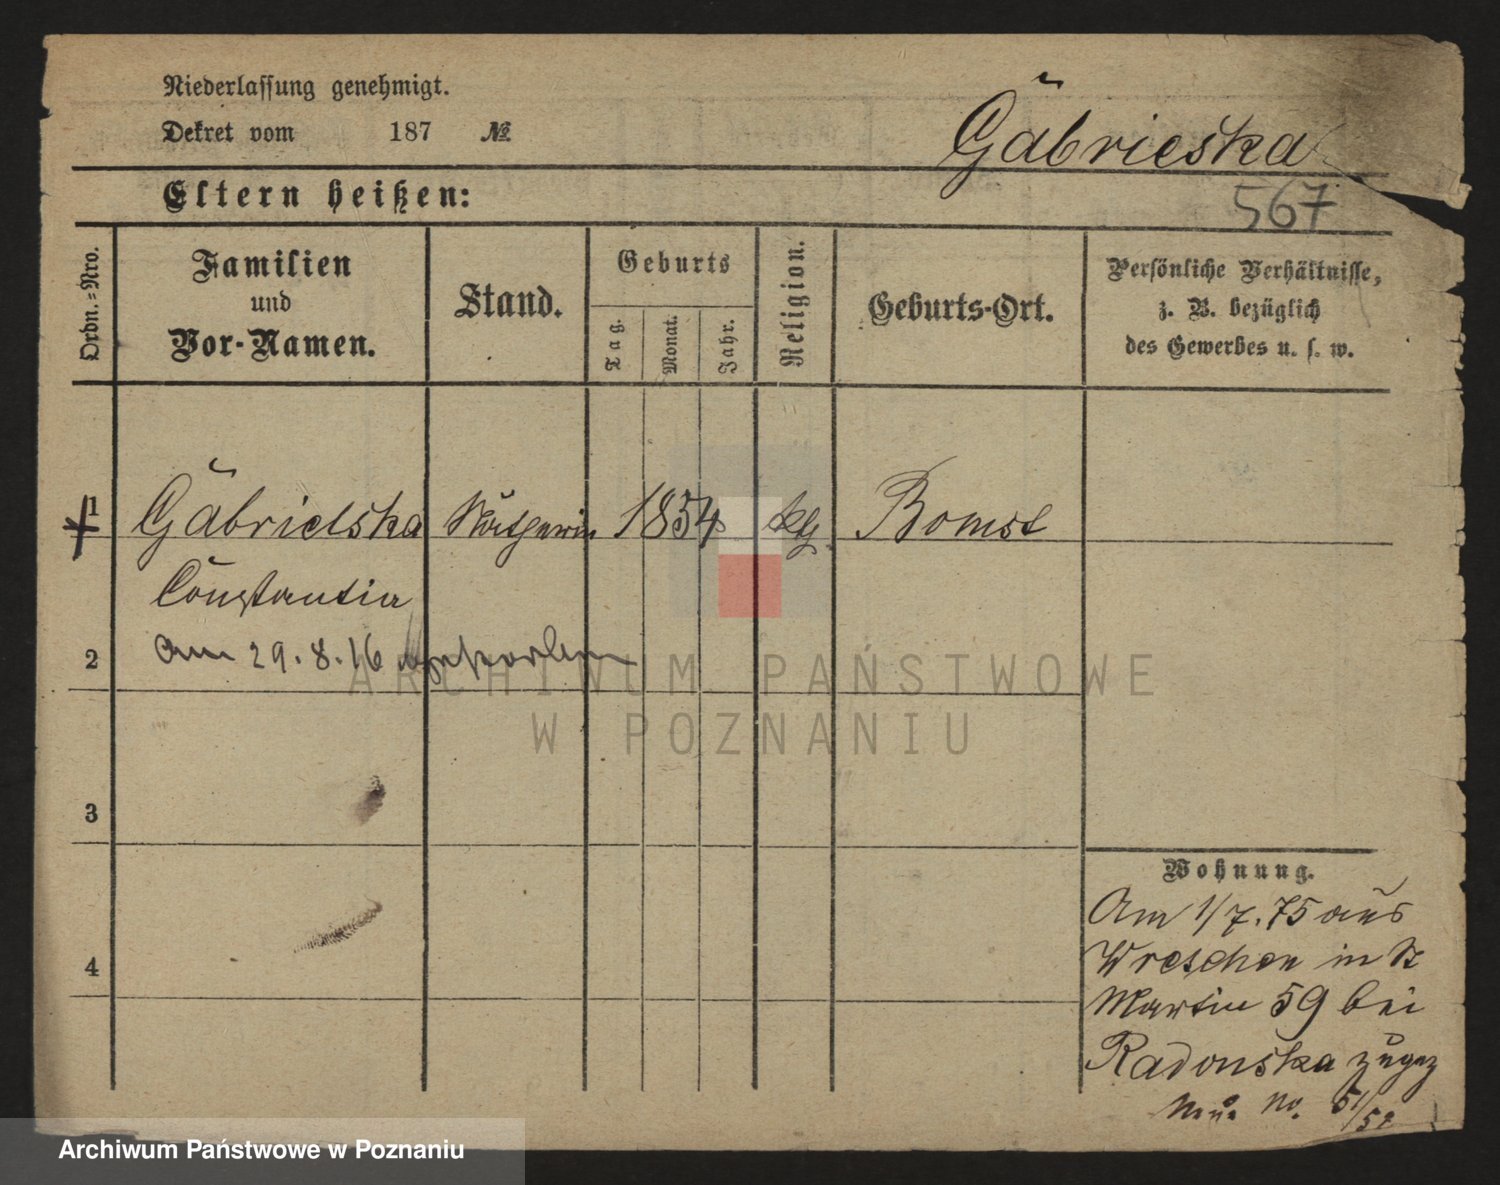 Niederlassung genehmigt.
Dekret vom 187 №
Gäbrielska
567
Eltern heißen:
Ordn.=Nro.
Familien
und
Vor-Namen.
Stand.
Geburts
Tag.
Monat.
Jahr.
Religion.
Geburts-Ort.
Persönliche Verhältnisse,
z. B. bezüglich
des Gewerbes u. s. w.
1 Gäbrielska Nätherin 1854 kth Bomst
Constantia
2 Am 29.8.16
3
4
ARCHIWUM PAŃSTWOWE
W POZNANIU
Wohnung.
Am 1/7.75 aus
Wreschen in St
Martin 59 bei
Radonska zugez
Neue No. 51/52
Archiwum Państwowe w Poznaniu